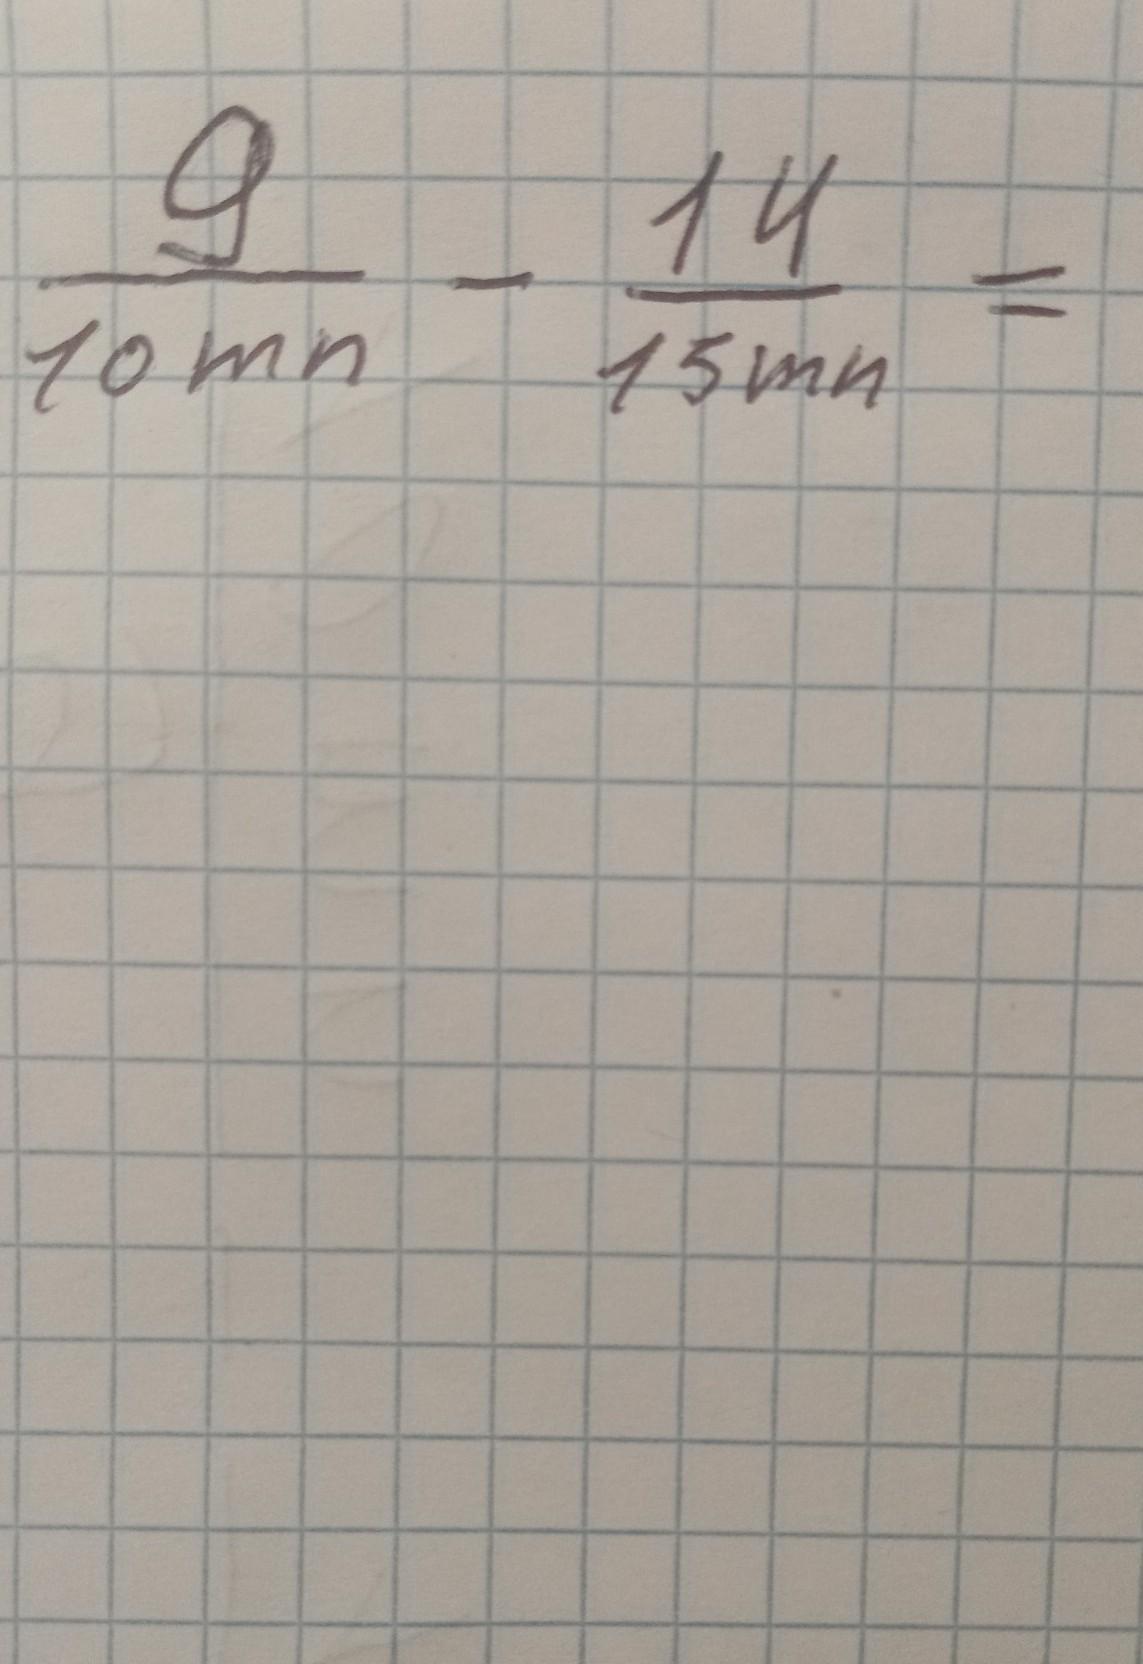 9/10mn - 14/15mn =